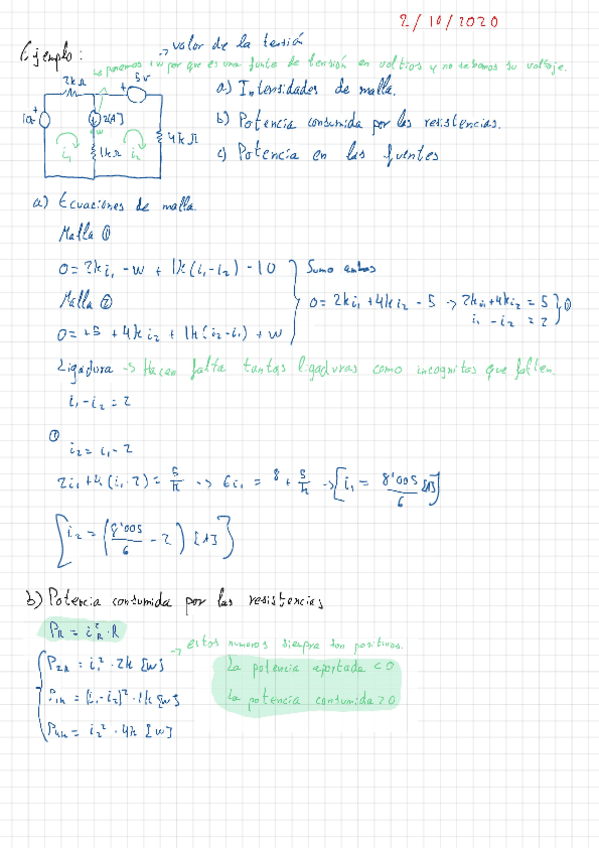 2/10/2020
Ejemplo:
→ valor de la tensión
→ ponemos 1w por que es una fuente de tensión en voltios y no sabemos su voltaje.
2kΩ
5v
10v
2[A]
w
1kΩ
4kΩ
i₁
i₂
a) Intensidades de malla.
b) Potencia consumida por las resistencias.
c) Potencia en las fuentes
a) Ecuaciones de malla.
Malla ①
0 = 2k i₁ - w + 1k(i₁-i₂) - 10
Sumo ambas
Malla ②
0 = 2ki₁ + 4ki₂ - 5 → 2ki₁ + 4ki₂ = 5
i₁ - i₂ = 2
①
0 = +5 + 4k i₂ + 1k(i₂-i₁) + w
Ligadura → Hacen falta tantas ligaduras como incognitas que falten.
i₁ - i₂ = 2
①
i₂ = i₁ - 2
2i₁ + 4(i₁-2) = 5/k → 6i₁ = 8 + 5/k → [i₁ = 8'005/6 [A]]
[i₂ = (8'005/6 - 2) [A]]
b) Potencia consumida por las resistencias
P_R = i²_R · R
→ estos numeros siempre son positivos.
P₂ₖ = i₁² · 2k [w]
La potencia aportada < 0
P₁ₖ = [i₁-i₂]² · 1k [w]
La potencia consumida > 0
P₄ₖ = i₂² · 4k [w]